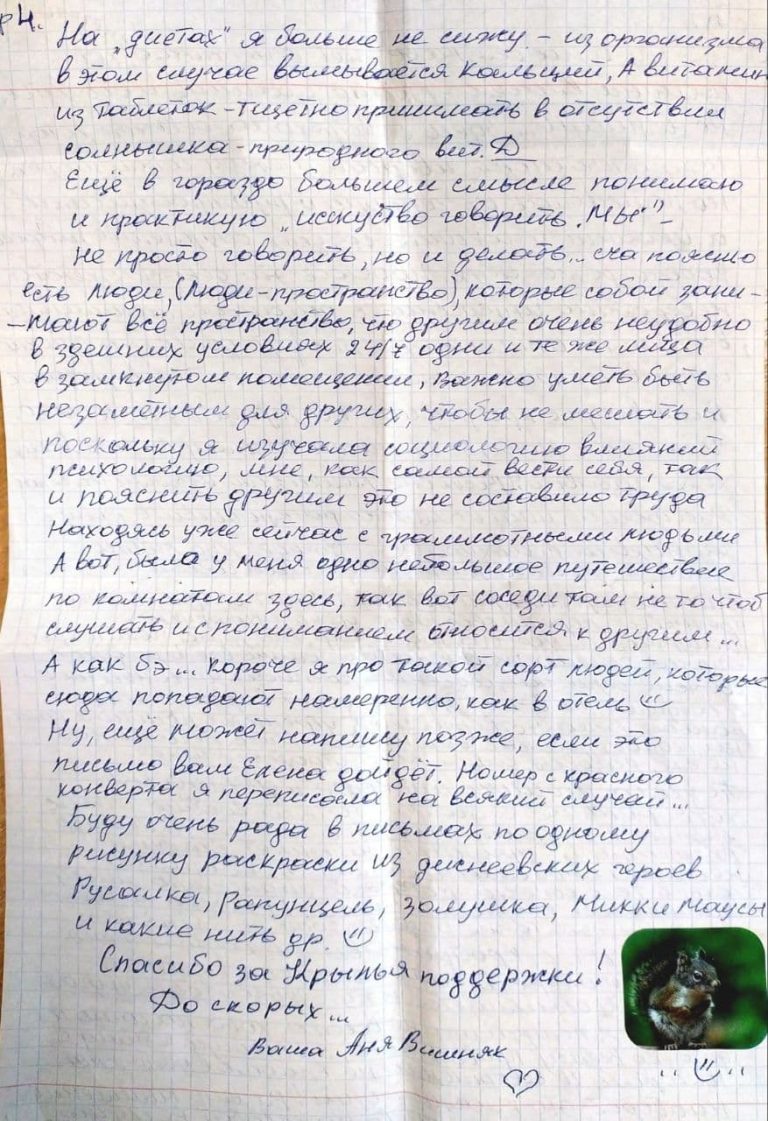 р4.
На „диетах" я больше не сижу - из организма
в этом случае вымывается кальций, А витамин
из таблеток - тщетно принимать в отсутствии
солнышка - природного вит. Д
Ещё в гораздо большем смысле понимаю
и практикую „исскуство говорить „МЫ""-
не просто говорить, но и делать... сча поясню
есть люди, (люди-пространство), которые собой зани-
-мают всё пространство, что другим очень неудобно
в здешних условиях 24/7 одни и те же лица
в замкнутом помещении, важно уметь быть
незаметным для других, чтобы не мешать и
поскольку я изучала социологию влияний
психологию, мне, как самой вести себя, так
и пояснить другим это не составило труда
находясь уже сейчас с грамотными людьми
А вот, было у меня одно небольшое путешествие
по комнатам здесь, так вот соседи там не то чтоб
слушать и с пониманием относится к другим...
А как бэ... короче я про такой сорт людей, которые
сюда попадают намеренно, как в отель
Ну, ещё может напишу позже, если это
письмо вам Елена дойдёт. Номер с красного
конверта я переписала на всякий случай...
Буду очень рада в письмах по одному
рисунку раскраски из диснеевских героев
Русалка, рапунцель, золушка, Микки маусы
и какие нить др.
Спасибо за Крылья поддержки!
До скорых...
Ваша Аня Вишняк